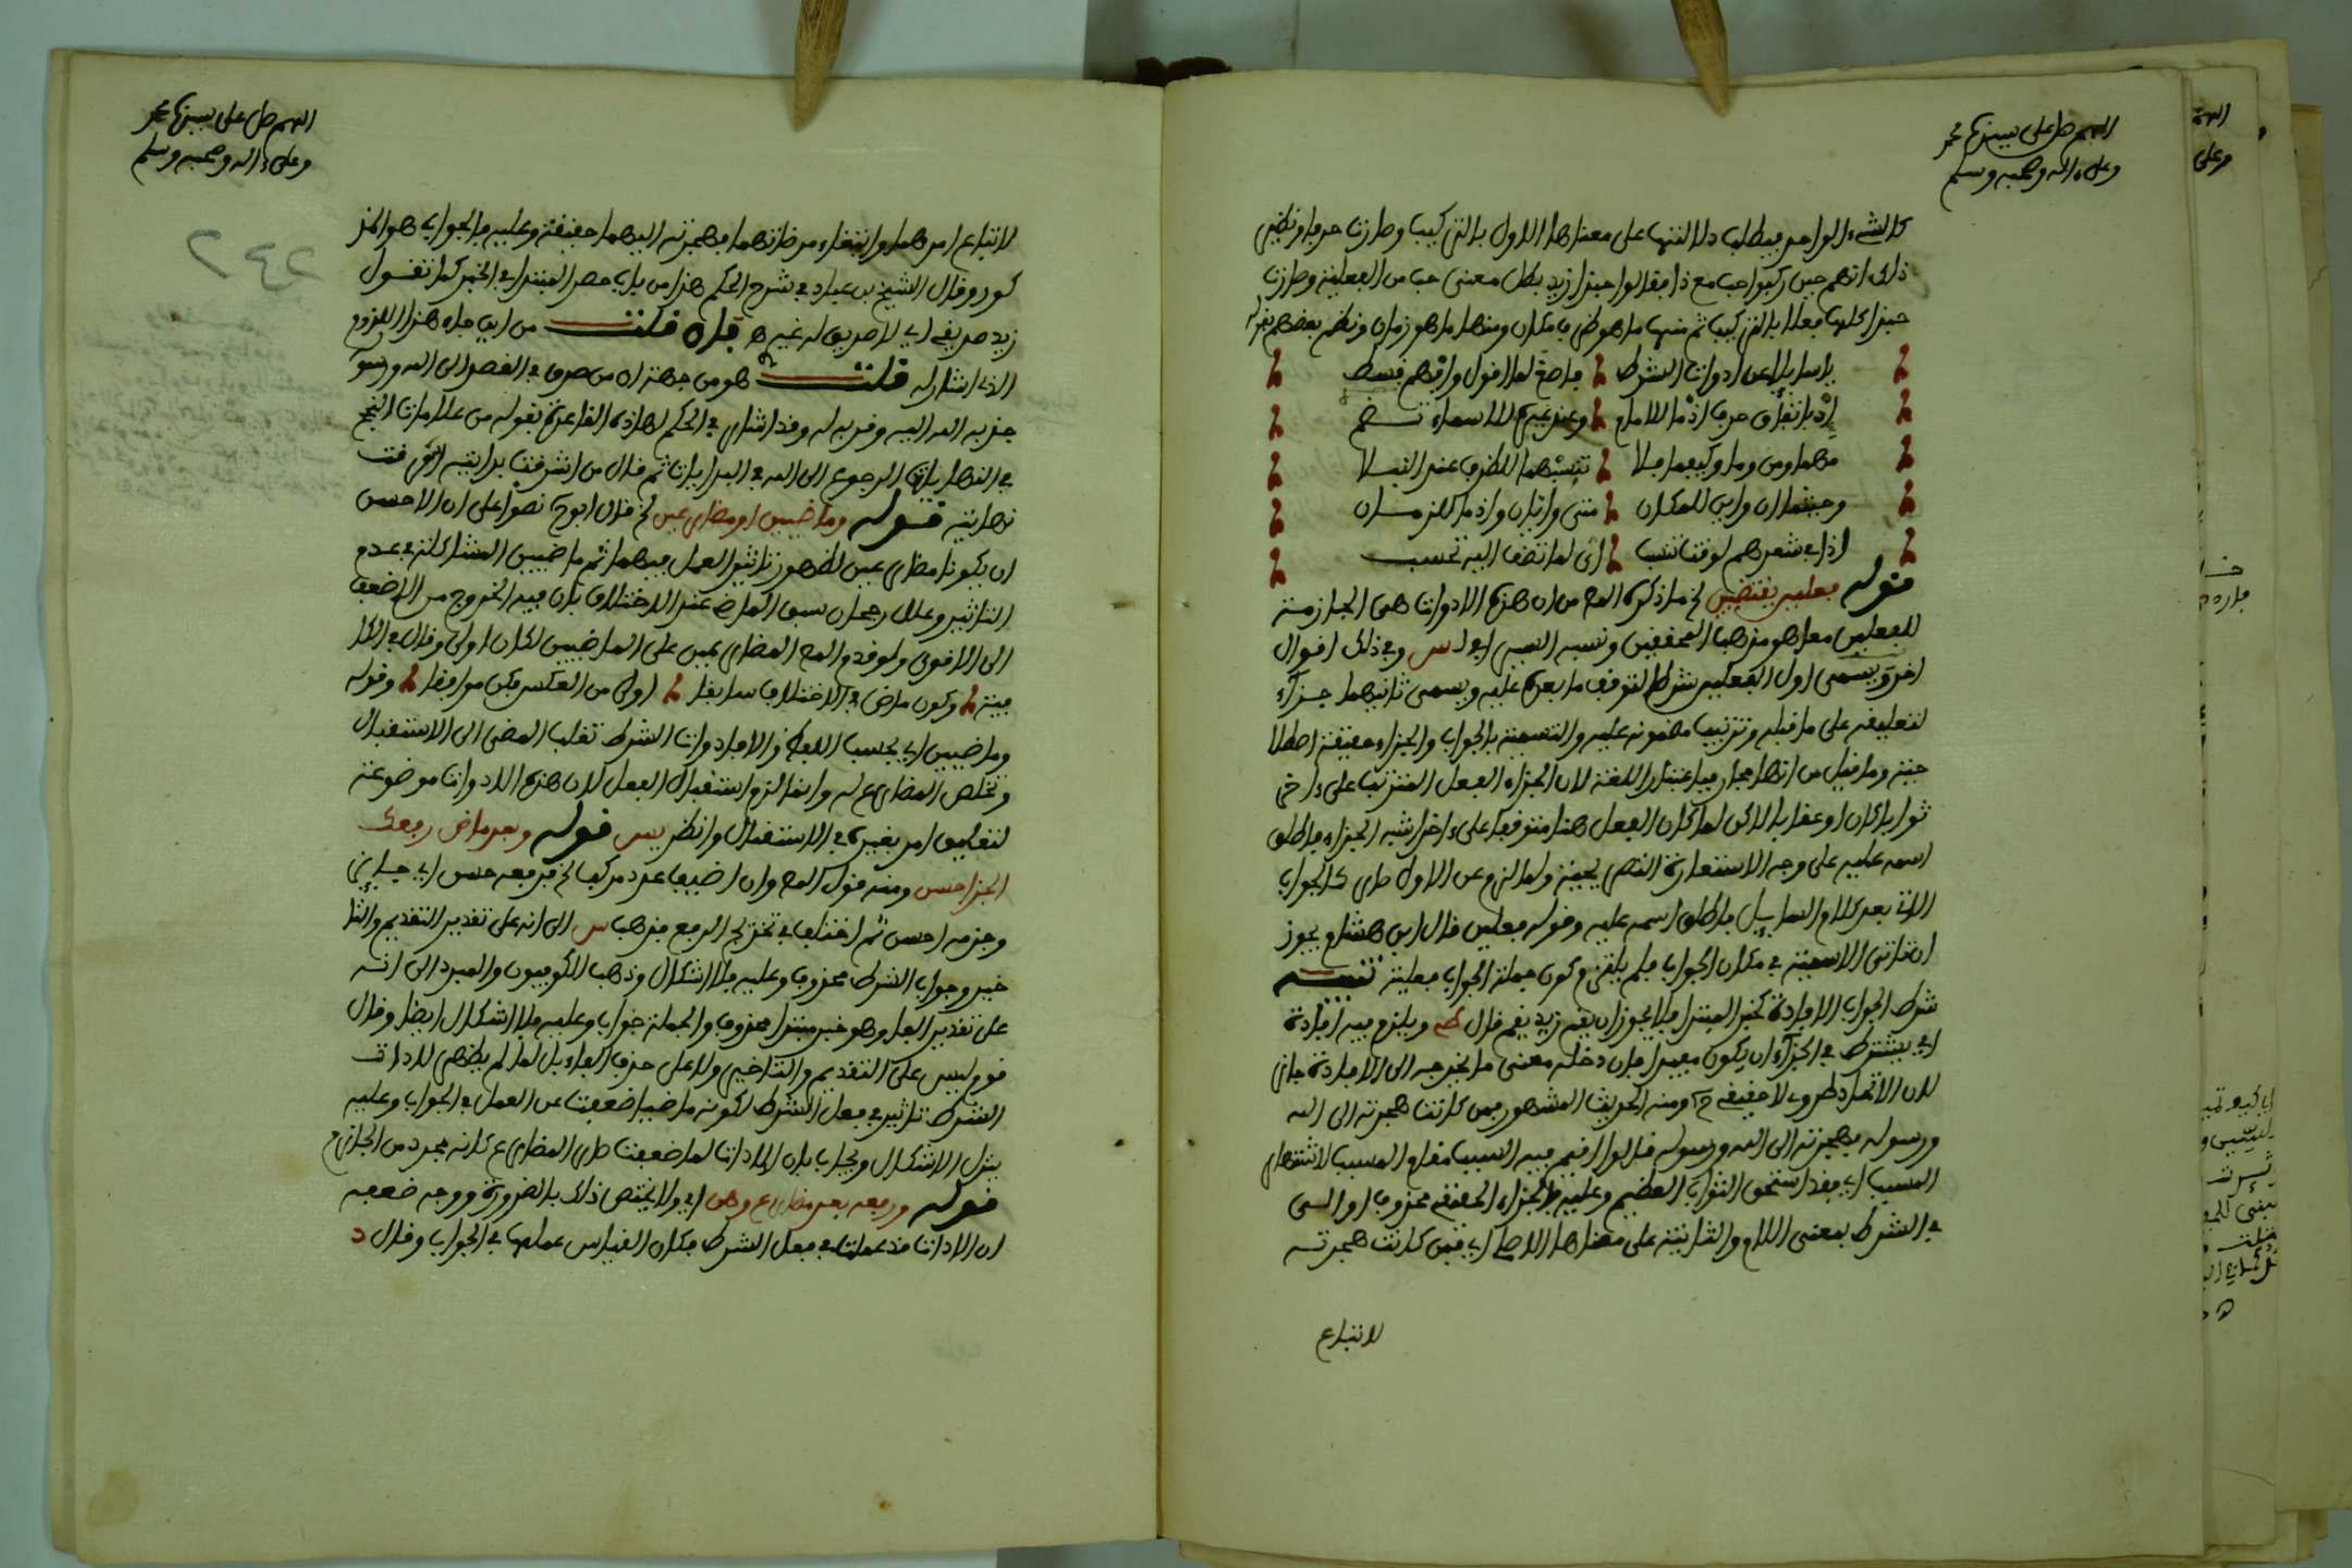 اللهم صل على سيدنا محمد
وعلى ءاله وصحبه وسلم
كالشيء الواحد فبطلت دلالتها على معناها الاول بالتركيب وصارت حرفا ونظير
ذلك انهم حين ركبوا حب مع ذا فقالوا حبذا زيد بطل معنى حب من الفعلية وصارت
حبذا كلها فعلا بالتركيب ثم منها ما هو ظرف مكان ومنها ما هو زمان ونظم بعضهم بقوله
يا سايلا عن ادوات الشرط فاصغ لما اقول وافهم قسط
إن باتفاق حرف اذما للامام وعند غيره للاسماء
مهما ومن وما وكيفما فلا للظرف عند النبلا
وحيثما ان واين للمكان متى وايان واذما للزمان
اذا في شعرهم لوقت تنسب اي لما تضف اليه تحسب
قوله فعلين يقتضين لخ ما ذكره المص من ان هذه الادوات هي الجازمة
للفعلين معا هو مذهب المحققين ونسبه السيرافي لس وفي ذلك اقوال
اخر ويسمى اول الفعلين شرطا لتوقف ما بعده عليه ويسمى ثانيهما جزاء
لتعليقه على ما قبله وترتيب مضمونه عليه والتسمية بالجواب والجزاء حقيقة اصطلا
حية وما قيل من انها مجاز فباعتبار اللغة لان الجزاء الفعل المترتب على ءاخر
ثوابا كان او عقابا لاكن لما كان الفعل هنا متوقفا على ءاخر اشبه الجزاء فاطلق
اسمه عليه على وجه الاستعارة التصريحية ولما لزم عن الاول صار كالجواب
الات بعد كلام السايل فاطلق اسمه عليه وقوله فعلين قال ابن هشام يجوز
ان تاتي الاسمية في مكان الجواب فلم يلتزم كون جملة الجواب فعلية تنبيه
شرط الجواب الافادة كخبر المبتدا فلا يجوز ان يقم زيد يقم قال ويلزم فيه افادة
اي يشترط في الجزاء ان يكون مفيدا فان دخله معنى ما يخرجه الى الافادة جاز
لان الاتحاد صوري لا حقيقي ومنه الحديث المشهور فمن كانت هجرته الى الله
ورسوله فهجرته الى الله ورسوله قالوا اقيم فيه السبب مقام المسبب لاشتهار
المسبب اي فقد استحق الثواب العظيم وعليه فالجزاء الحقيقي محذوف او الى
في الشرط بمعنى اللام والثانية على معناها الاصلي اي فمن كانت هجرته
لاتباع
اللهم صل على سيدنا محمد
وعلى ءاله وصحبه وسلم
لاتباع امرهما وابتغاء مرضاتهما فهجرته اليهما حقيقة وعليه فالجواب هو المذ
كور وقال الشيخ بن عباد في شرح الحكم هذا من باب حصر المبتدا في الخبر كما تقول
زيد صديقي اي لا صديق له غيره فان قلت من اين جاء هذا اللزوم
الذي اشار له قلت هو من جهة ان من صدق في القصد الى الله ورسو
جذبه الله اليه وقربه له وقد اشار في الحكم لهاذه القاعدة بقوله من علامات النجح
في النهايات الرجوع الى الله في البدايات ثم قال من اشرقت بدايته اشرقت
نهايته قوله وماضيين او مضارعين لخ قال نصوا على ان الاحسن
ان يكونا مضارعين لظهور تاثير العمل فيهما ثم ماضيين المشاكلة في عدم
التاثير وعلل رجحان سبق الماضي عند الاختلاف بان فيه الخروج من الاضعف
الى الاقوى ولو قدم المص المضارعين على الماضيين لكان اولى وقال في الكا
فية وكون ماض في الاختلاف سابقا اولى من العكس فكن موافقا وقوله
وماضيين اي بحسب اللفظ والا فادوات الشرط تقلب الماضي الى الاستقبال
وتخلص المضارع له وانما التزم استقبال الفعل لان هذه الادوات موضوعة
لتعليق امر بغيره في الاستقبال وانظر يس قوله وبعد ماض رفعك
الجزا حسن ومنه قول المص وان اضيف عدد مركب لخ فرفعه حسن
وجزمه احسن ثم اختلف في تخريج الرفع فذهب س الى انه على تقدير التقديم والتا
خير وجواب الشرط محذوف وعليه فلا اشكال وذهب الكوفيون والمبرد الى انه
على تقدير الفا وهو خبر مبتدا محذوف والجملة جواب وعليه فلا اشكال ايضا وقال
قوم ليس على التقديم والتاخير ولا على حذف الفاء بل لما لم يظهر لاداة
الشرط تاثير في فعل الشرط لكونه ماضيا ضعفت عن العمل في الجواب وعليه
ينزل الاشكال ويجاب بان الادات لما ضعفت صار المضارع كانه مجرد من الجازم
قوله ورفعه بعد مضارع وهن اي ولا يختص ذلك بالضرورة ووجه ضعفه
ان الادات قد عملت في فعل الشرط فكان القياس عملها في الجواب وقال د